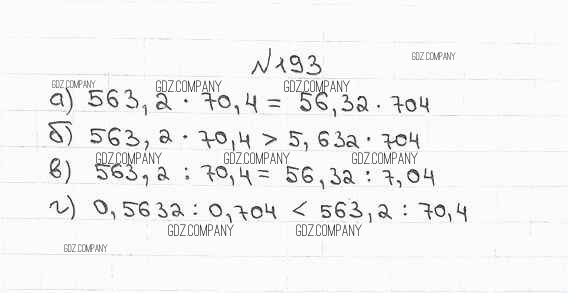 №193
GDZ.COMPANY
GDZ.COMPANY GDZ.COMPANY GDZ.COMPANY
а) 563,2 · 70,4 = 56,32 · 704
б) 563,2 · 70,4 > 5,632 · 704
GDZ.COMPANY GDZ.COMPANY GDZ.COMPANY
в) 563,2 : 70,4 = 56,32 : 7,04
г) 0,5632 : 0,704 < 563,2 : 70,4
GDZ.COMPANY GDZ.COMPANY
GDZ.COMPANY